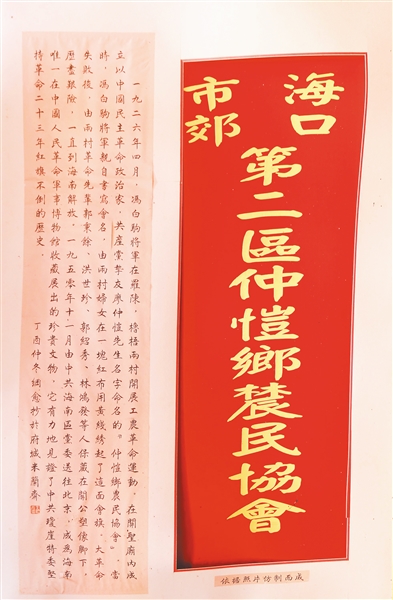 海口
市郊
第二區仲愷鄉農民協會
依据照片仿制而成
一九二六年四月，馮白駒將軍在羅陳，梧梧两村開展工農革命運動，在關聖廟内成
立以中國民主革命政治家、共産党摯友廖仲恺先生名字命名的“仲恺鄉農民協會”。當
時，馮白駒將軍親自書寫會名，由两村婦女在一塊红布用黄线绣起了這面會旗，大革命
失敗後，由两村革命先輩郭京餘、洪世珍、郭紹秀、林鴻發等人保蔵在關公塑像脚下，
歷盡艱險，一直到海南解放，一九五〇年十一月由中共海南區党委送往北京，成爲海南
唯一在中國人民革命軍事博物館收蔵展出的珍貴文物，它有力地見證了中共瓊崖特委堅
持革命二十三年红旗不倒的歷史。
丁酉仲冬抄於府城米蘭齋